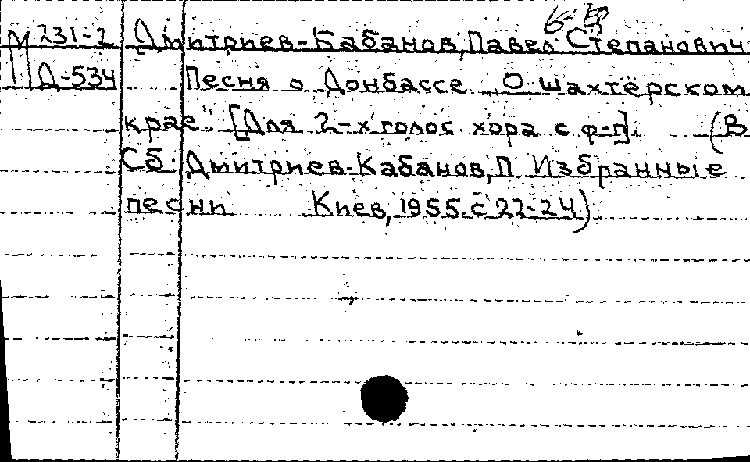 М 231-2 Дмитриев-Кабанов, Павел Степанович
Д-534 Песня о Донбассе „О шахтёрском
крае". [Для 2-х голос хора с ф-п]. (В
Сб: Дмитриев-Кабанов, П Избранные
песни Киев, 1955. с 22-24)